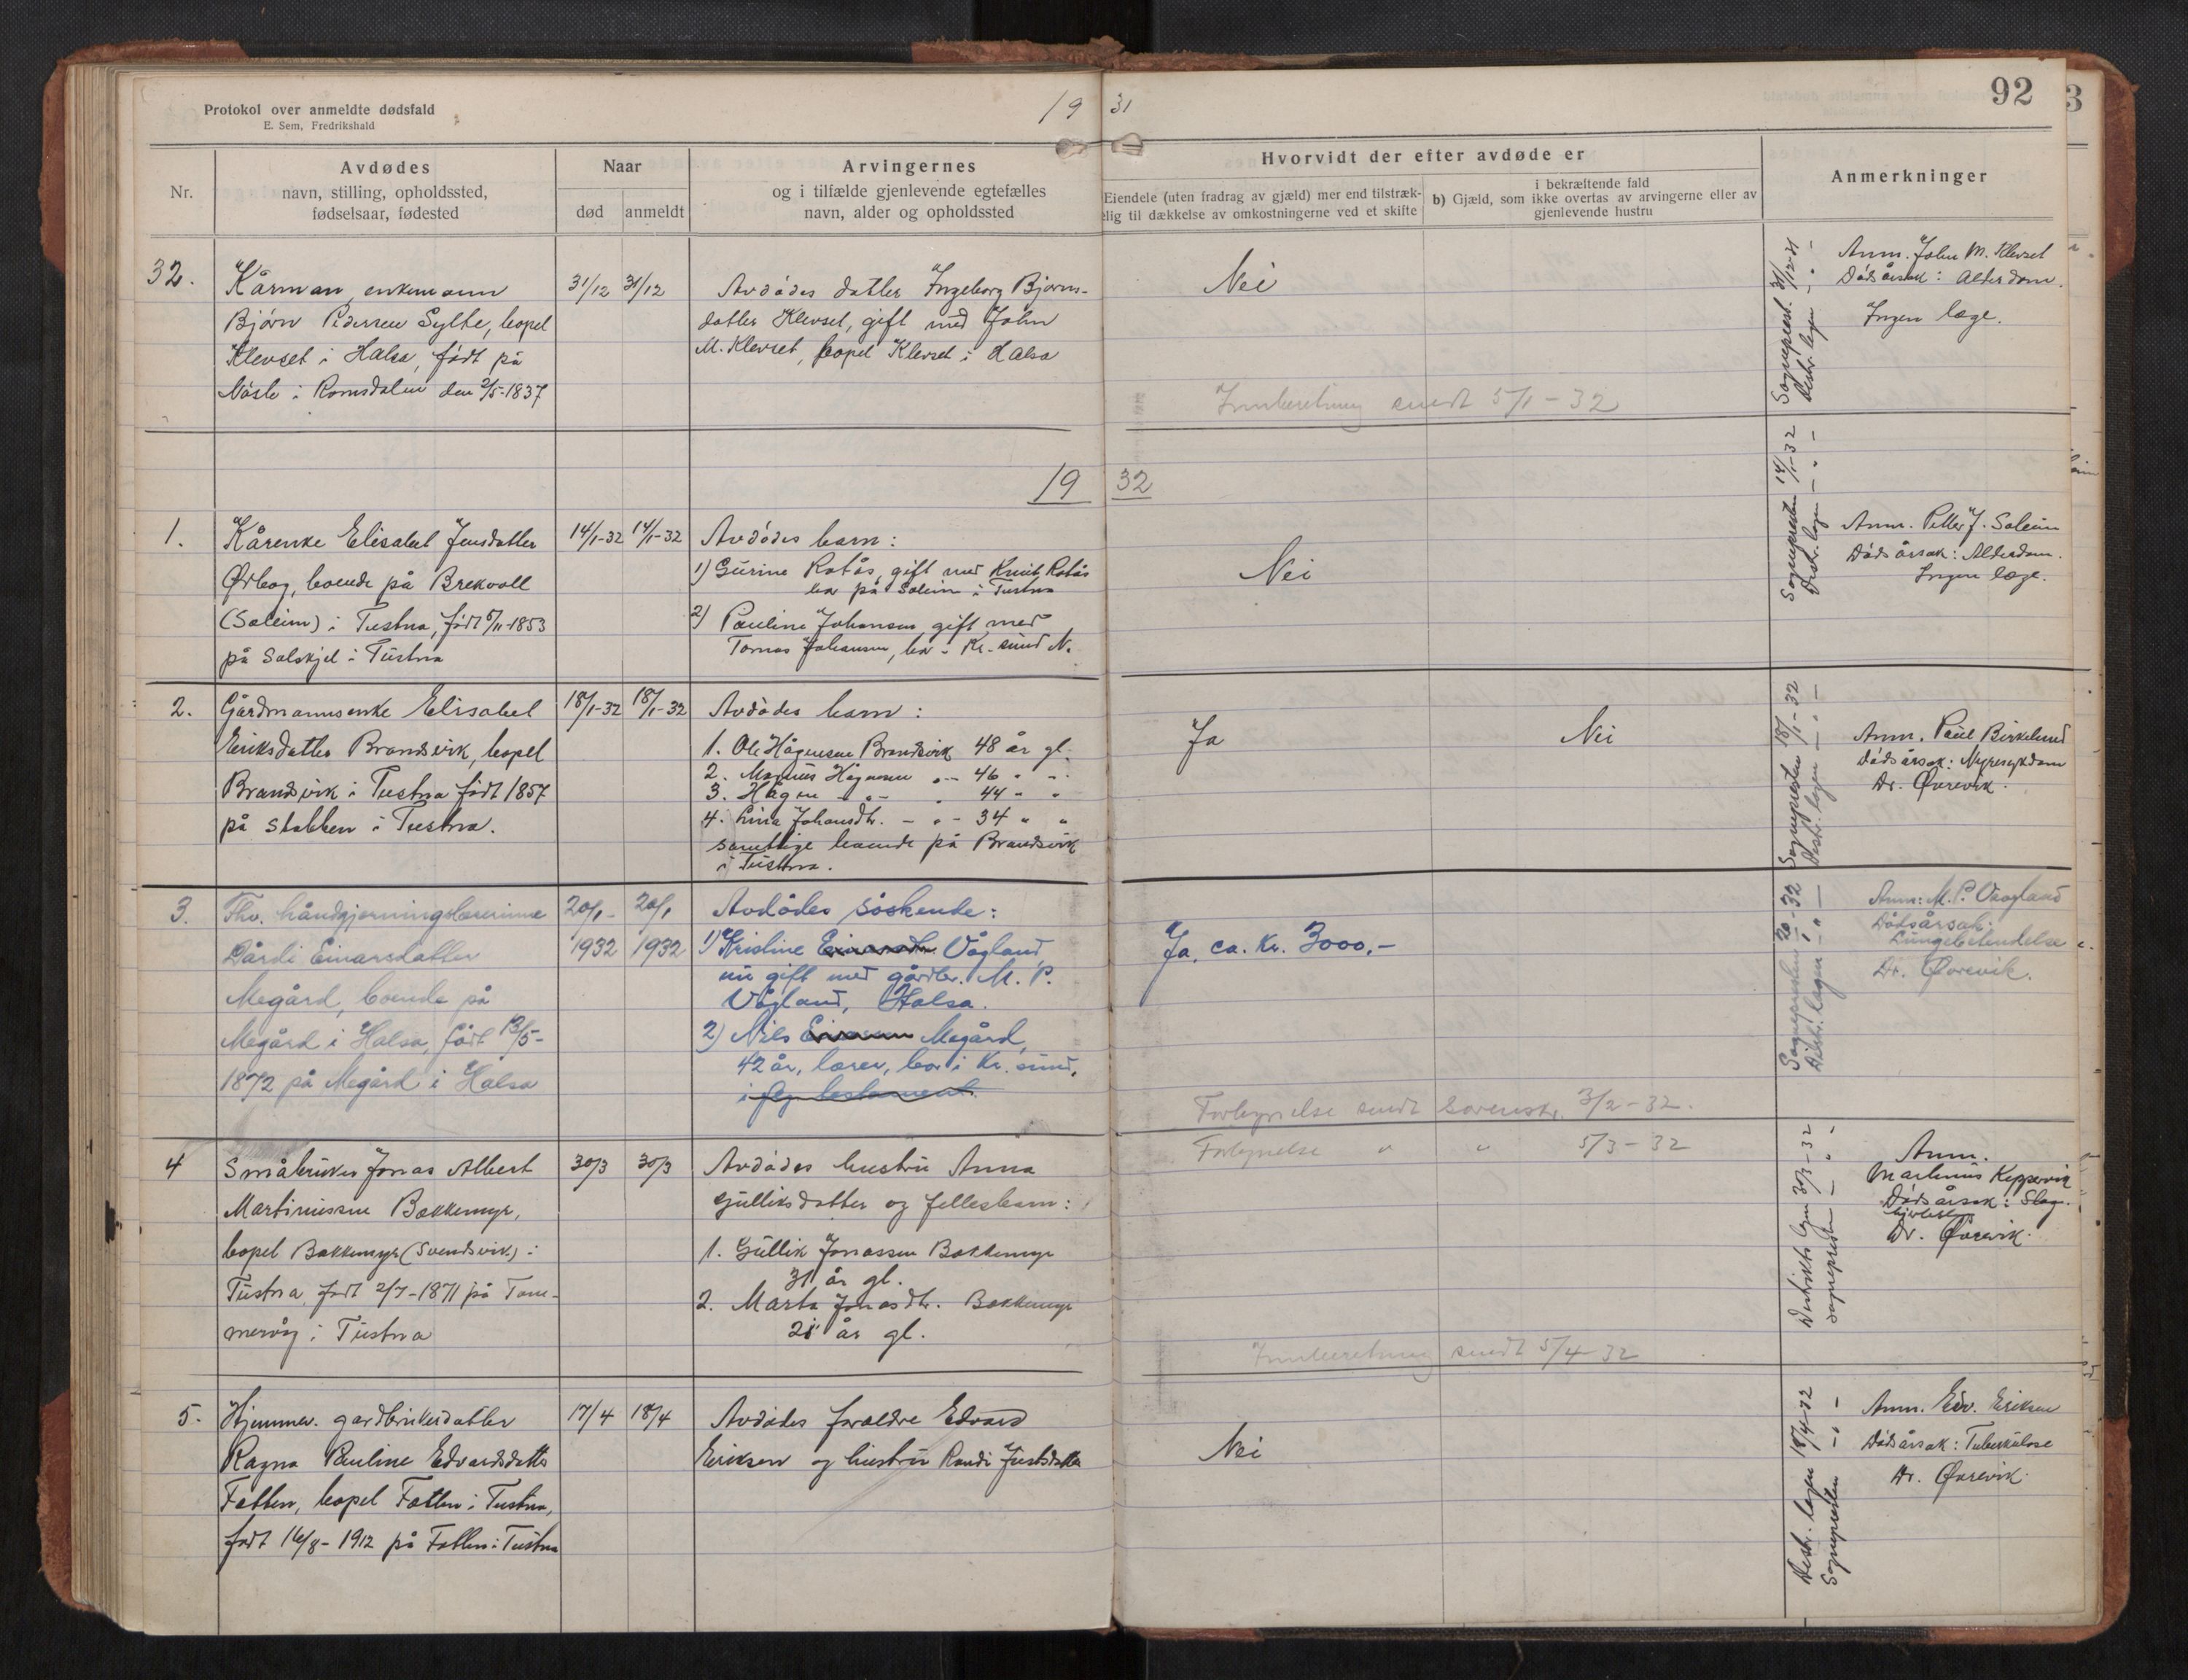 Protokol over anmeldte dødsfald
E. Sem, Fredrikshald
19 31
92
Nr.
Avdødes
navn, stilling, opholdssted,
fødselsaar, fødested
Naar
død
anmeldt
Arvingernes
og i tilfælde gjenlevende egtefælles
navn, alder og opholdssted
Hvorvidt der efter avdøde er
Eiendele (uten fradrag av gjæld) mer end tilstræk-
elig til dækkelse av omkostningerne ved et skifte
i bekræftende fald
b) Gjæld, som ikke overtas av arvingerne eller av
gjenlevende hustru
Anmerkninger
32.
Kårmann, enkemann
Bjørn Pedersen Sylte, bopel
Klevset i Halsa, født på
i Romsdalen den 2/5-1837
31/12 31/12
Avdødes datter Ingeborg Bjørns-
datter Klevset, gift med John
M. Klevset, bopel Klevset i Halsa
Nei
Innberetning sendt 5/1-32
Sognepresten 31/12-31
Distr. legen - " -
Anm. John M. Klevset
Dødsårsak: Alderdom.
Ingen læge.
19 32
1.
Kårenke Elisabet Jensdatter
Ørbog, boende på Brekvoll
(Soleim) i Tustna, født 5/11-1853
på Solskjel i Tustna
14/1-32 14/1-32
Avdødes barn:
1) Gurine Rotås, gift med Knut Rotås
bor på Soleim i Tustna
2) Pauline Johansen gift med
Tomas Johansen, bor i Kr.sund N.
Nei
Sognepresten 14/1-32
Distr. legen - " -
Anm. Petter J. Soleim
Dødsårsak: Alderdom.
Ingen læge.
2.
Gårdmannsenke Elisabet
Eriksdatter Brandsvik, bopel
Brandsvik i Tustna født 1857
på Stabben i Tustna.
18/1-32 18/1-32
Avdødes barn:
1. Ole Hågensen Brandsvik 48 år gl.
2. Magnus Hågensen " - 46 " "
3. Hågen - " - " 44 " "
4. Lina Johansdtr. - " - 34 " "
samtlige boende på Brandsvik
i Tustna.
Ja
Nei
Sognepresten 18/1-32
Distr. legen - " -
Anm. Paul Birkelund
Dødsårsak: Nyresykdom
Dr. Øvrevik.
3.
Fhv. håndgjerningslærerinne
Dårdi Einarsdatter
Megård, boende på
Megård i Halsa, født 13/5-
1872 på Megård i Halsa
20/1- 20/1
1932 1932
Avdødes søskende:
1) Kristine Einarsdtr. Vågland,
nu gift med gårdbr. M. P.
Vågland, Halsa.
2) Nils Einarsen Megård,
42 år, lærer, bor i Kr.sund,
i flg. testament.
Ja, ca. Kr. 3000,-
Forbyrelse sendt Sorenskr. 3/2-32.
Sognepresten 20/1-32
Distr. legen - " -
Anm: M. P. Vaagland
Dødsårsak:
Lungebetendelse
Dr. Øvrevik.
4
Småbruker Jonas Albert
Martinussen Bakkemyr,
bopel Bakkemyr (Svendsvik) i
Tustna, født 2/7-1871 på Tom-
mervåg i Tustna
30/3 30/3
Avdødes hustru Anna
Gulliksdatter og fellesbarn:
1. Gullik Jonassen Bakkemyr
31 år gl.
2. Marta Jonasdtr. Bakkemyr
21 år gl.
" " 5/3-32
Innberetning sendt 5/4-32
Distrikts legen 30/3-32
Sognepresten - " -
Anm.
Martinus Keppervik
Dødsårsak: Slag.
Dr. Øvrevik.
5.
Hjemmev. gardbrukerdatter
Ragna Pauline Edvardsdatter
Fætten, bopel Fætten i Tustna,
født 16/8-1912 på Fætten i Tustna
17/4 18/4
Avdødes foreldre Edvard
Eriksen og hustru Randi Justsdatter
Nei
Distr. legen 18/4-32
Sognepresten - " -
Anm. Edv. Eriksen
Dødsårsak: Tuberkulose
Dr. Øvrevik.